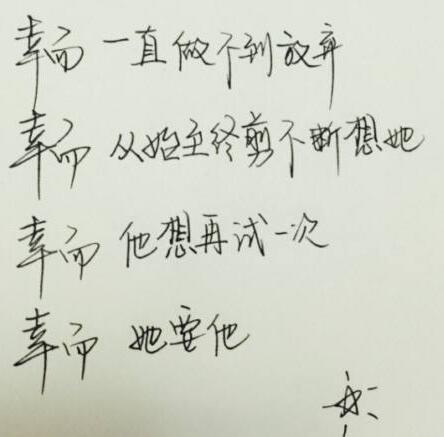 幸而 一直做不到放弃
幸而 从始至终剪不断想她
幸而 他想再试一次
幸而 她要他